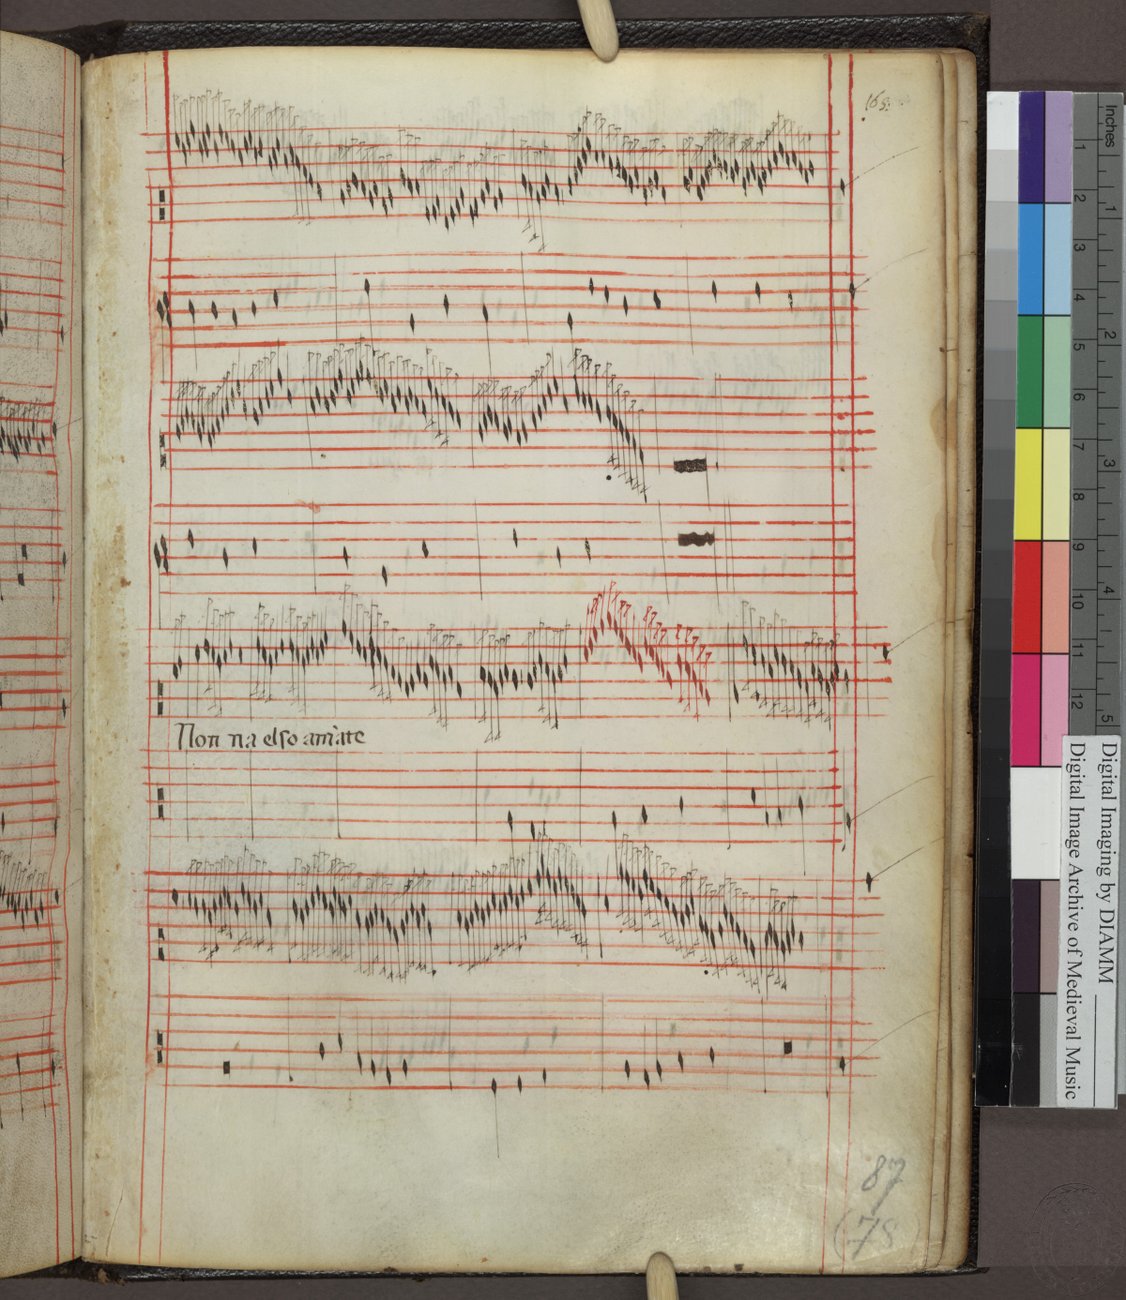 163
Non na elso am̄ate
87
(78)
Inches
1
2
3
4
5
6
7
8
9
10
11
12
1
2
3
4
5
Digital Imaging by DIAMM
Digital Image Archive of Medieval Music